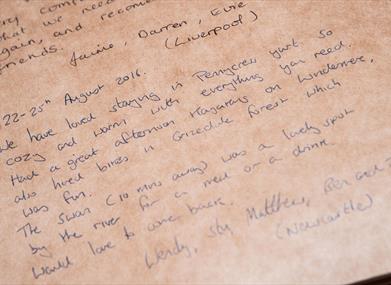 what we need
again, and recom
friends.
Jamie, Darren, Evie
(Liverpool)
22-25th August 2016.
We have loved staying in Pennycress yurt. So
cozy and warm with everything you need.
Had a great afternoon on Windermere,
also hired bikes in Grizedale Forest which
was fun.
The Swan (10 mins away) was a lovely spot
by the river for a meal or a drink.
Would love to come back.
Wendy, Matthew, Ben and
(Newcastle)